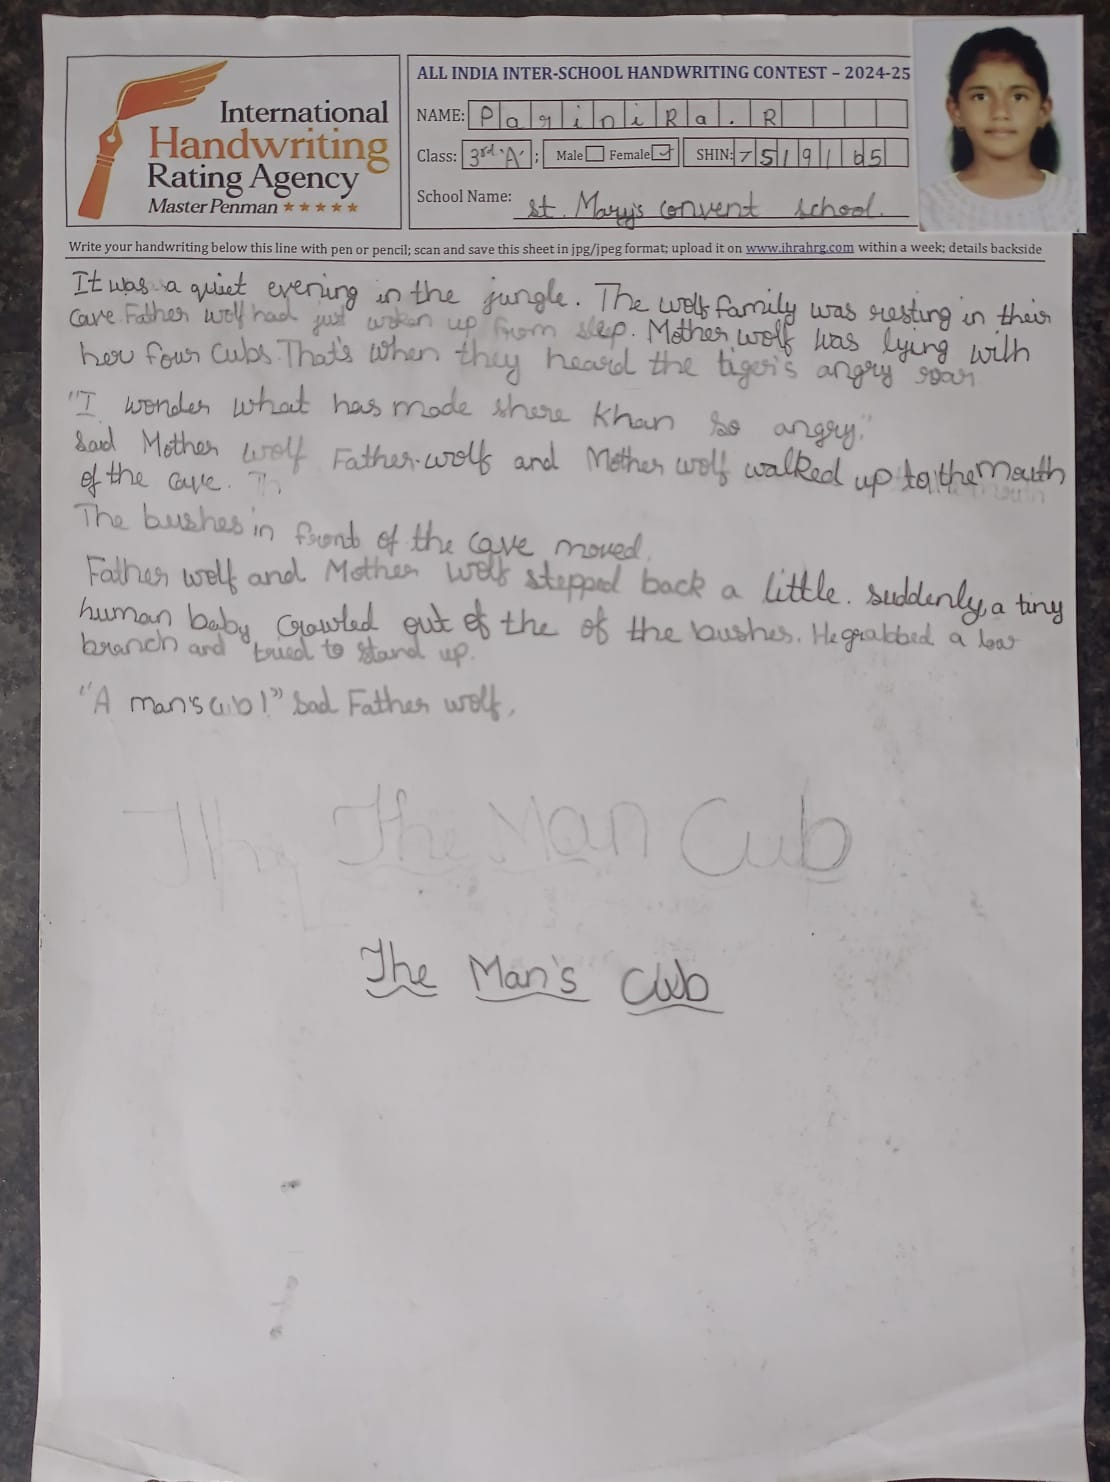 International
Handwriting
Rating Agency
Master Penman ★★★★★
ALL INDIA INTER-SCHOOL HANDWRITING CONTEST – 2024-25
NAME: PariniRa. R
Class: 3rd 'A' ; Male Female SHIN: 7519165
School Name: St. Mary's convent school.
Write your handwriting below this line with pen or pencil; scan and save this sheet in jpg/jpeg format; upload it on www.ihrahrg.com within a week; details backside
It was a quiet evening in the jungle. The wolf family was resting in their
cave. Father wolf had just woken up from slep. Mother wolf was lying with
her four cubs. That's when they heard the tiger's angry roar
"I wonder what has made shere Khan so angry."
Said Mother wolf Father wolf and Mother wolf walked up to the mouth
of the cave. Th
The bushes in front of the cave moved.
Father wolf and Mother wolf stepped back a little. suddenly, a tiny
human baby crawled out of the of the bushes. He grabbed a low
branch and tried to stand up.
"A man's cub!" Sad Father wolf.
The The Man Cub
The Man's Cub